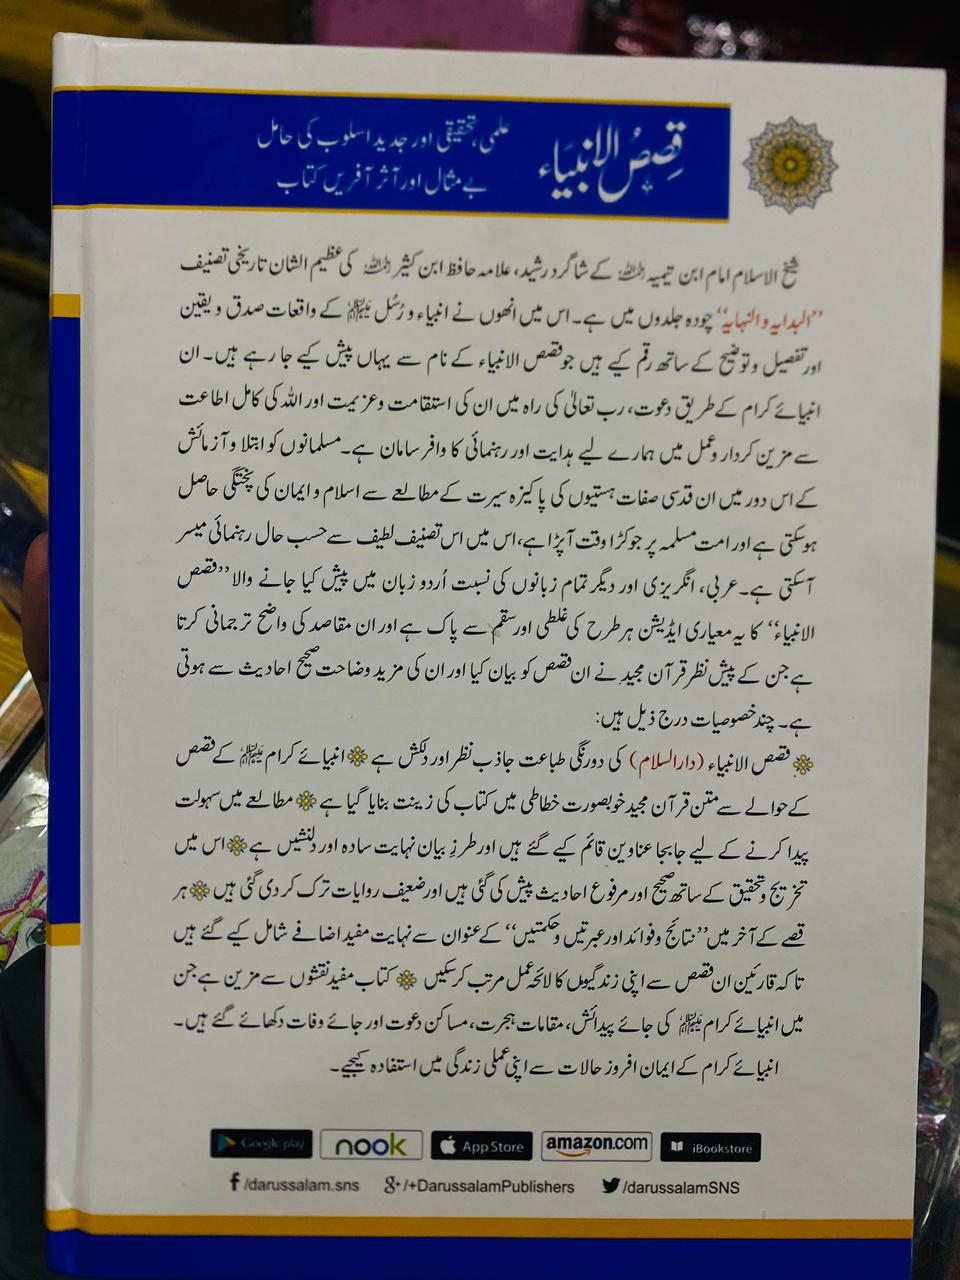 قصص الانبیاء
علمی، تحقیقی اور جدید اسلوب کی حامل
بے مثال اور آثر آفریں کتاب
شیخ الاسلام امام ابن تیمیہ رحمہ اللہ کے شاگرد رشید، علامہ حافظ ابن کثیر رحمہ اللہ کی عظیم الشان تاریخی تصنیف
’’البدایہ والنہایہ‘‘ چودہ جلدوں میں ہے۔ اس میں انھوں نے انبیاء و رُسُل علیہم السلام کے واقعات صدق و یقین
اور تفصیل و توضیح کے ساتھ رقم کیے ہیں جو قصص الانبیاء کے نام سے یہاں پیش کیے جا رہے ہیں۔ ان
انبیائے کرام کے طریق دعوت، رب تعالیٰ کی راہ میں ان کی استقامت و عزیمت اور اللہ کی کامل اطاعت
سے مزین کردار و عمل میں ہمارے لیے ہدایت اور رہنمائی کا وافر سامان ہے۔ مسلمانوں کو ابتلا و آزمائش
کے اس دور میں ان قدسی صفات ہستیوں کی پاکیزہ سیرت کے مطالعے سے اسلام و ایمان کی پختگی حاصل
ہوسکتی ہے اور امت مسلمہ پر جو کڑا وقت آپڑا ہے، اس میں اس تصنیف لطیف سے حسب حال رہنمائی میسر
آسکتی ہے۔ عربی، انگریزی اور دیگر تمام زبانوں کی نسبت اُردو زبان میں پیش کیا جانے والا ’’قصص
الانبیاء‘‘ کا یہ معیاری ایڈیشن ہر طرح کی غلطی اور سقم سے پاک ہے اور ان مقاصد کی واضح ترجمانی کرتا
ہے جن کے پیش نظر قرآن مجید نے ان قصص کو بیان کیا اور ان کی مزید وضاحت صحیح احادیث سے ہوتی
ہے۔ چند خصوصیات درج ذیل ہیں:
قصص الانبیاء (دارالسلام) کی دورنگی طباعت جاذب نظر اور دلکش ہے انبیائے کرام علیہم السلام کے قصص
کے حوالے سے متن قرآن مجید خوبصورت خطاطی میں کتاب کی زینت بنایا گیا ہے مطالعے میں سہولت
پیدا کرنے کے لیے جابجا عناوین قائم کیے گئے ہیں اور طرزِ بیان نہایت سادہ اور دلنشیں ہے اس میں
تخریج و تحقیق کے ساتھ صحیح اور مرفوع احادیث پیش کی گئی ہیں اور ضعیف روایات ترک کر دی گئی ہیں ہر
قصے کے آخر میں ’’نتائج و فوائد اور عبرتیں و حکمتیں‘‘ کے عنوان سے نہایت مفید اضافے شامل کیے گئے ہیں
تاکہ قارئین ان قصص سے اپنی زندگیوں کا لائحہ عمل مرتب کرسکیں کتاب مفید نقشوں سے مزین ہے جن
میں انبیائے کرام علیہم السلام کی جائے پیدائش، مقامات ہجرت، مساکن دعوت اور جائے وفات دکھائے گئے ہیں۔
انبیائے کرام کے ایمان افروز حالات سے اپنی عملی زندگی میں استفادہ کیجیے۔
Google play nook App Store amazon.com iBookstore
f /darussalam.sns g+ /+DarussalamPublishers /darussalamSNS